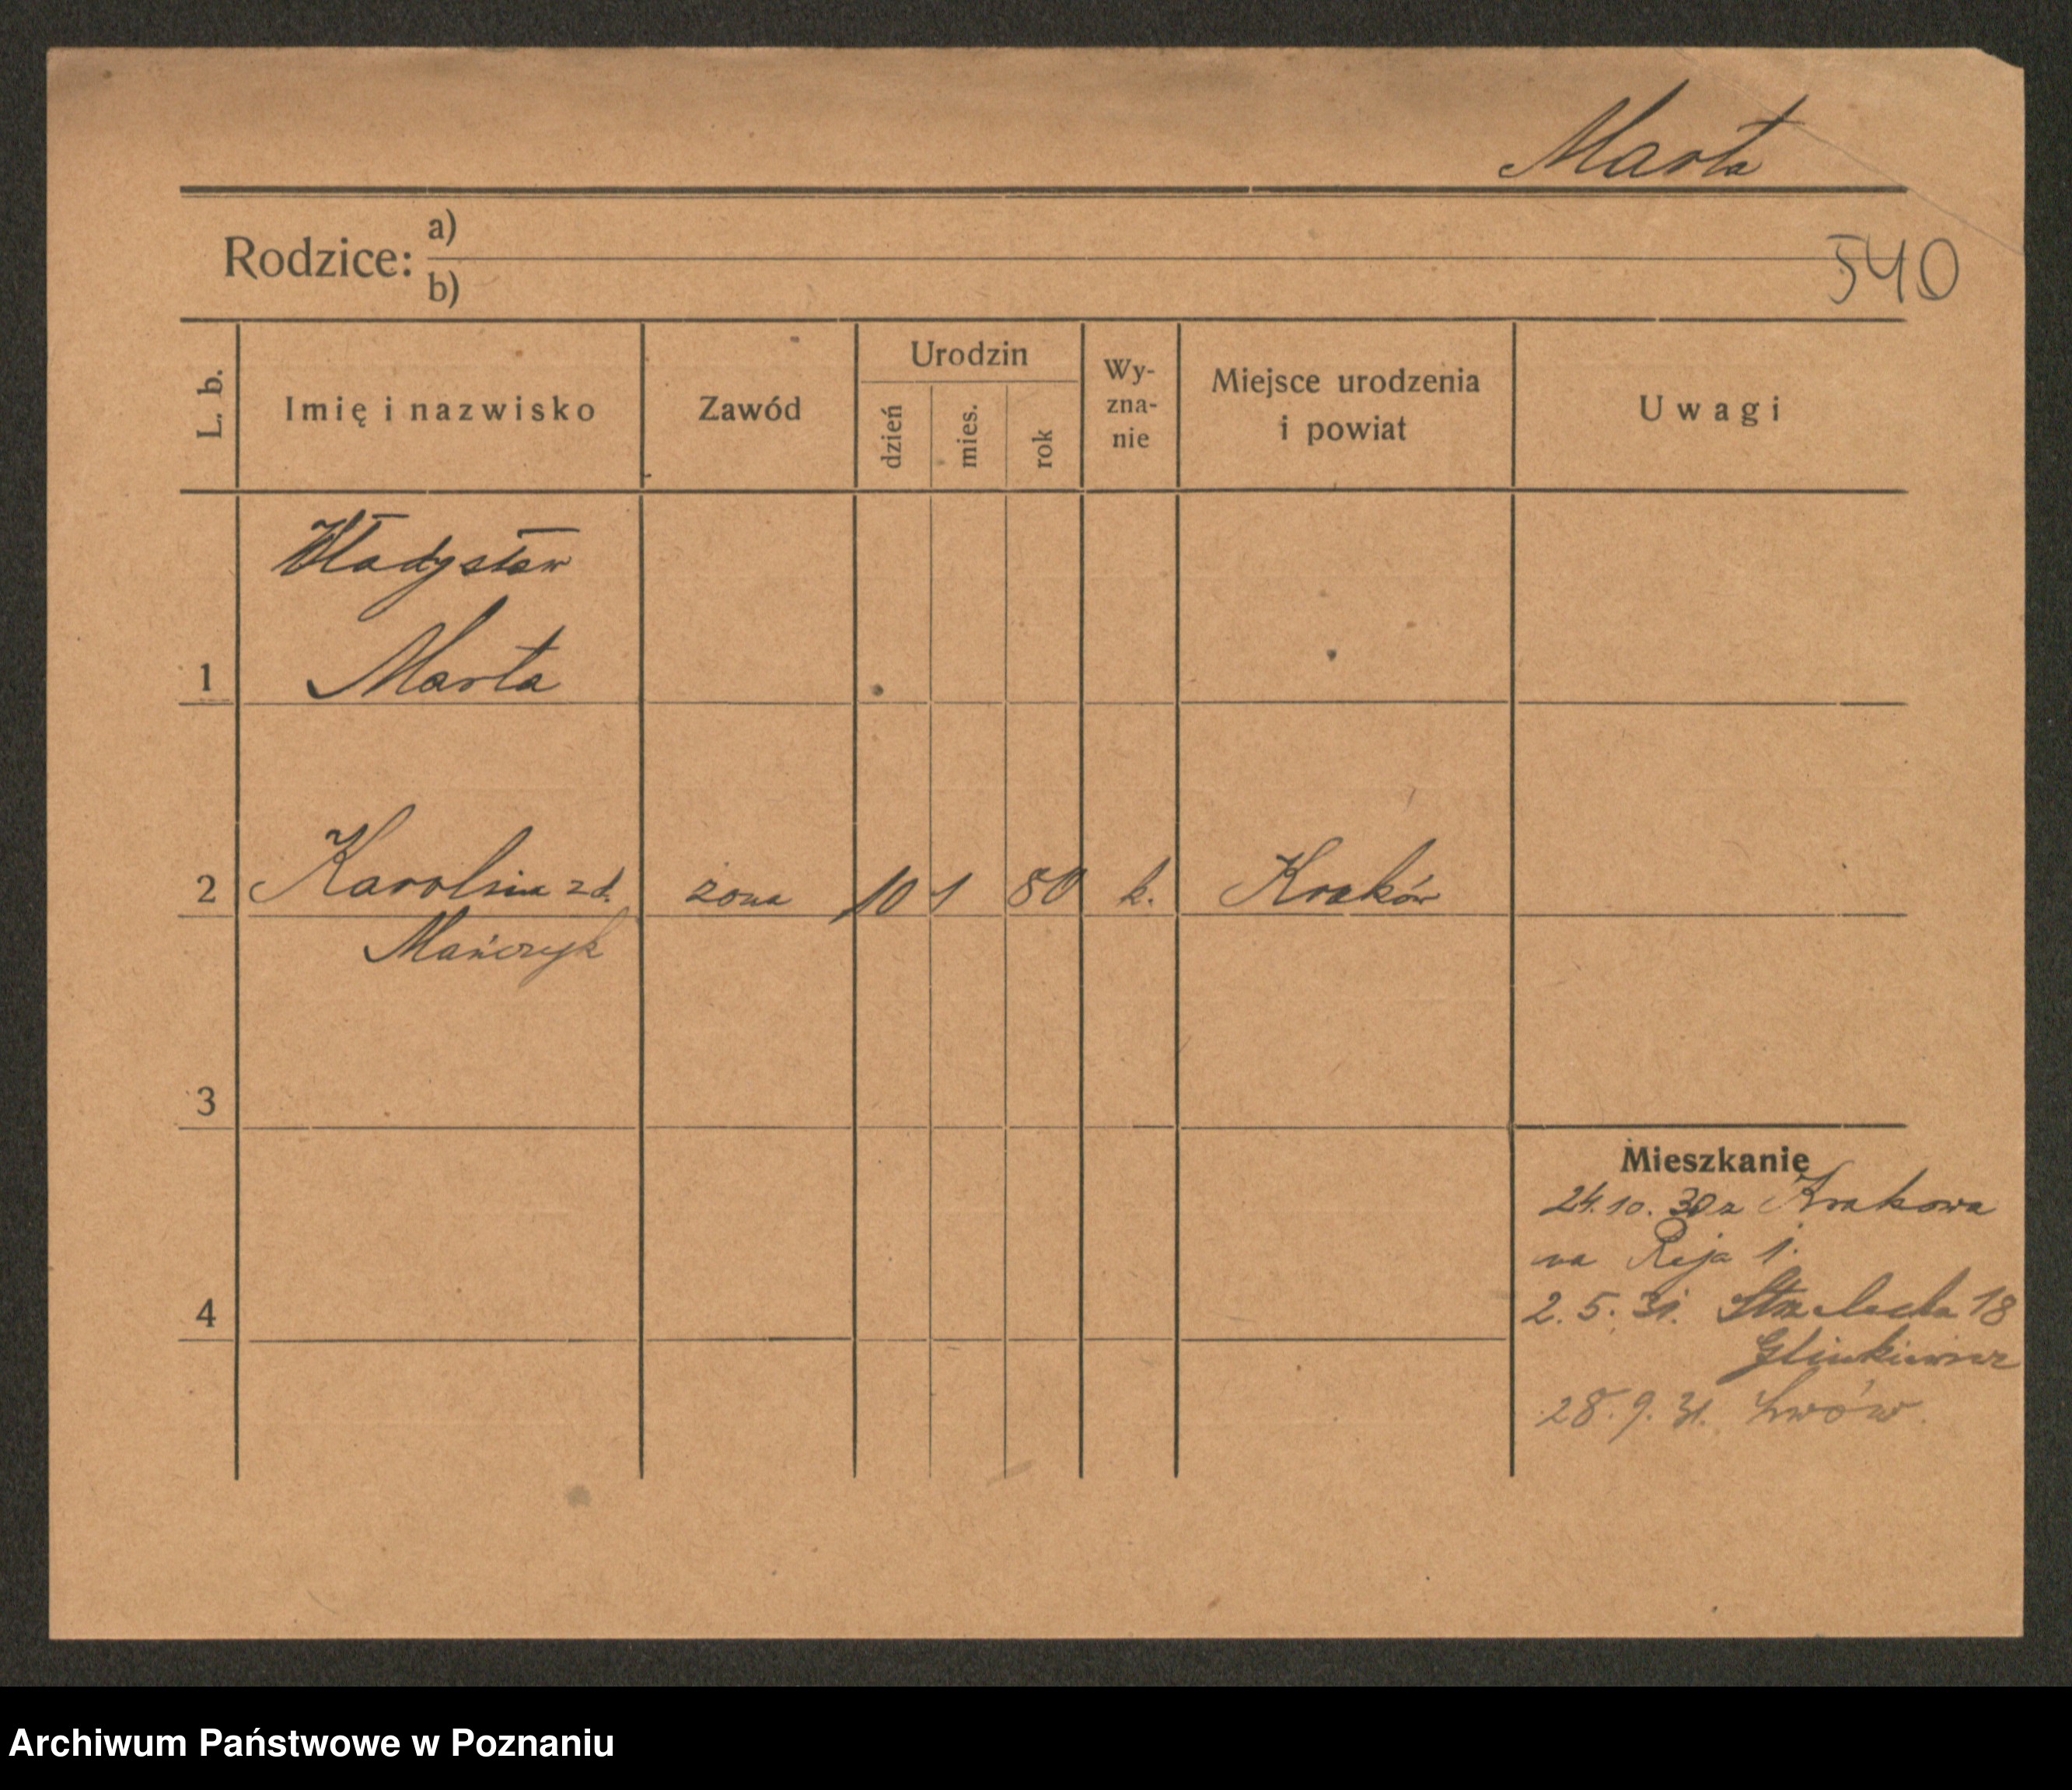 Marta
Rodzice: a)
b)
540
L. b.
Imię i nazwisko
Zawód
Urodzin
dzień
mies.
rok
Wy-
zna-
nie
Miejsce urodzenia
i powiat
Uwagi
Władysław
1 Marta
2 Karolina zd. żona 10 1 80 k. Kraków
Mańczyk
3
Mieszkanie
24.10.30 z Krakowa
na Reja 1.
4
2.5.31. Strzelecka 18
Glinkiewicz
28.9.31. Lwów.
Archiwum Państwowe w Poznaniu